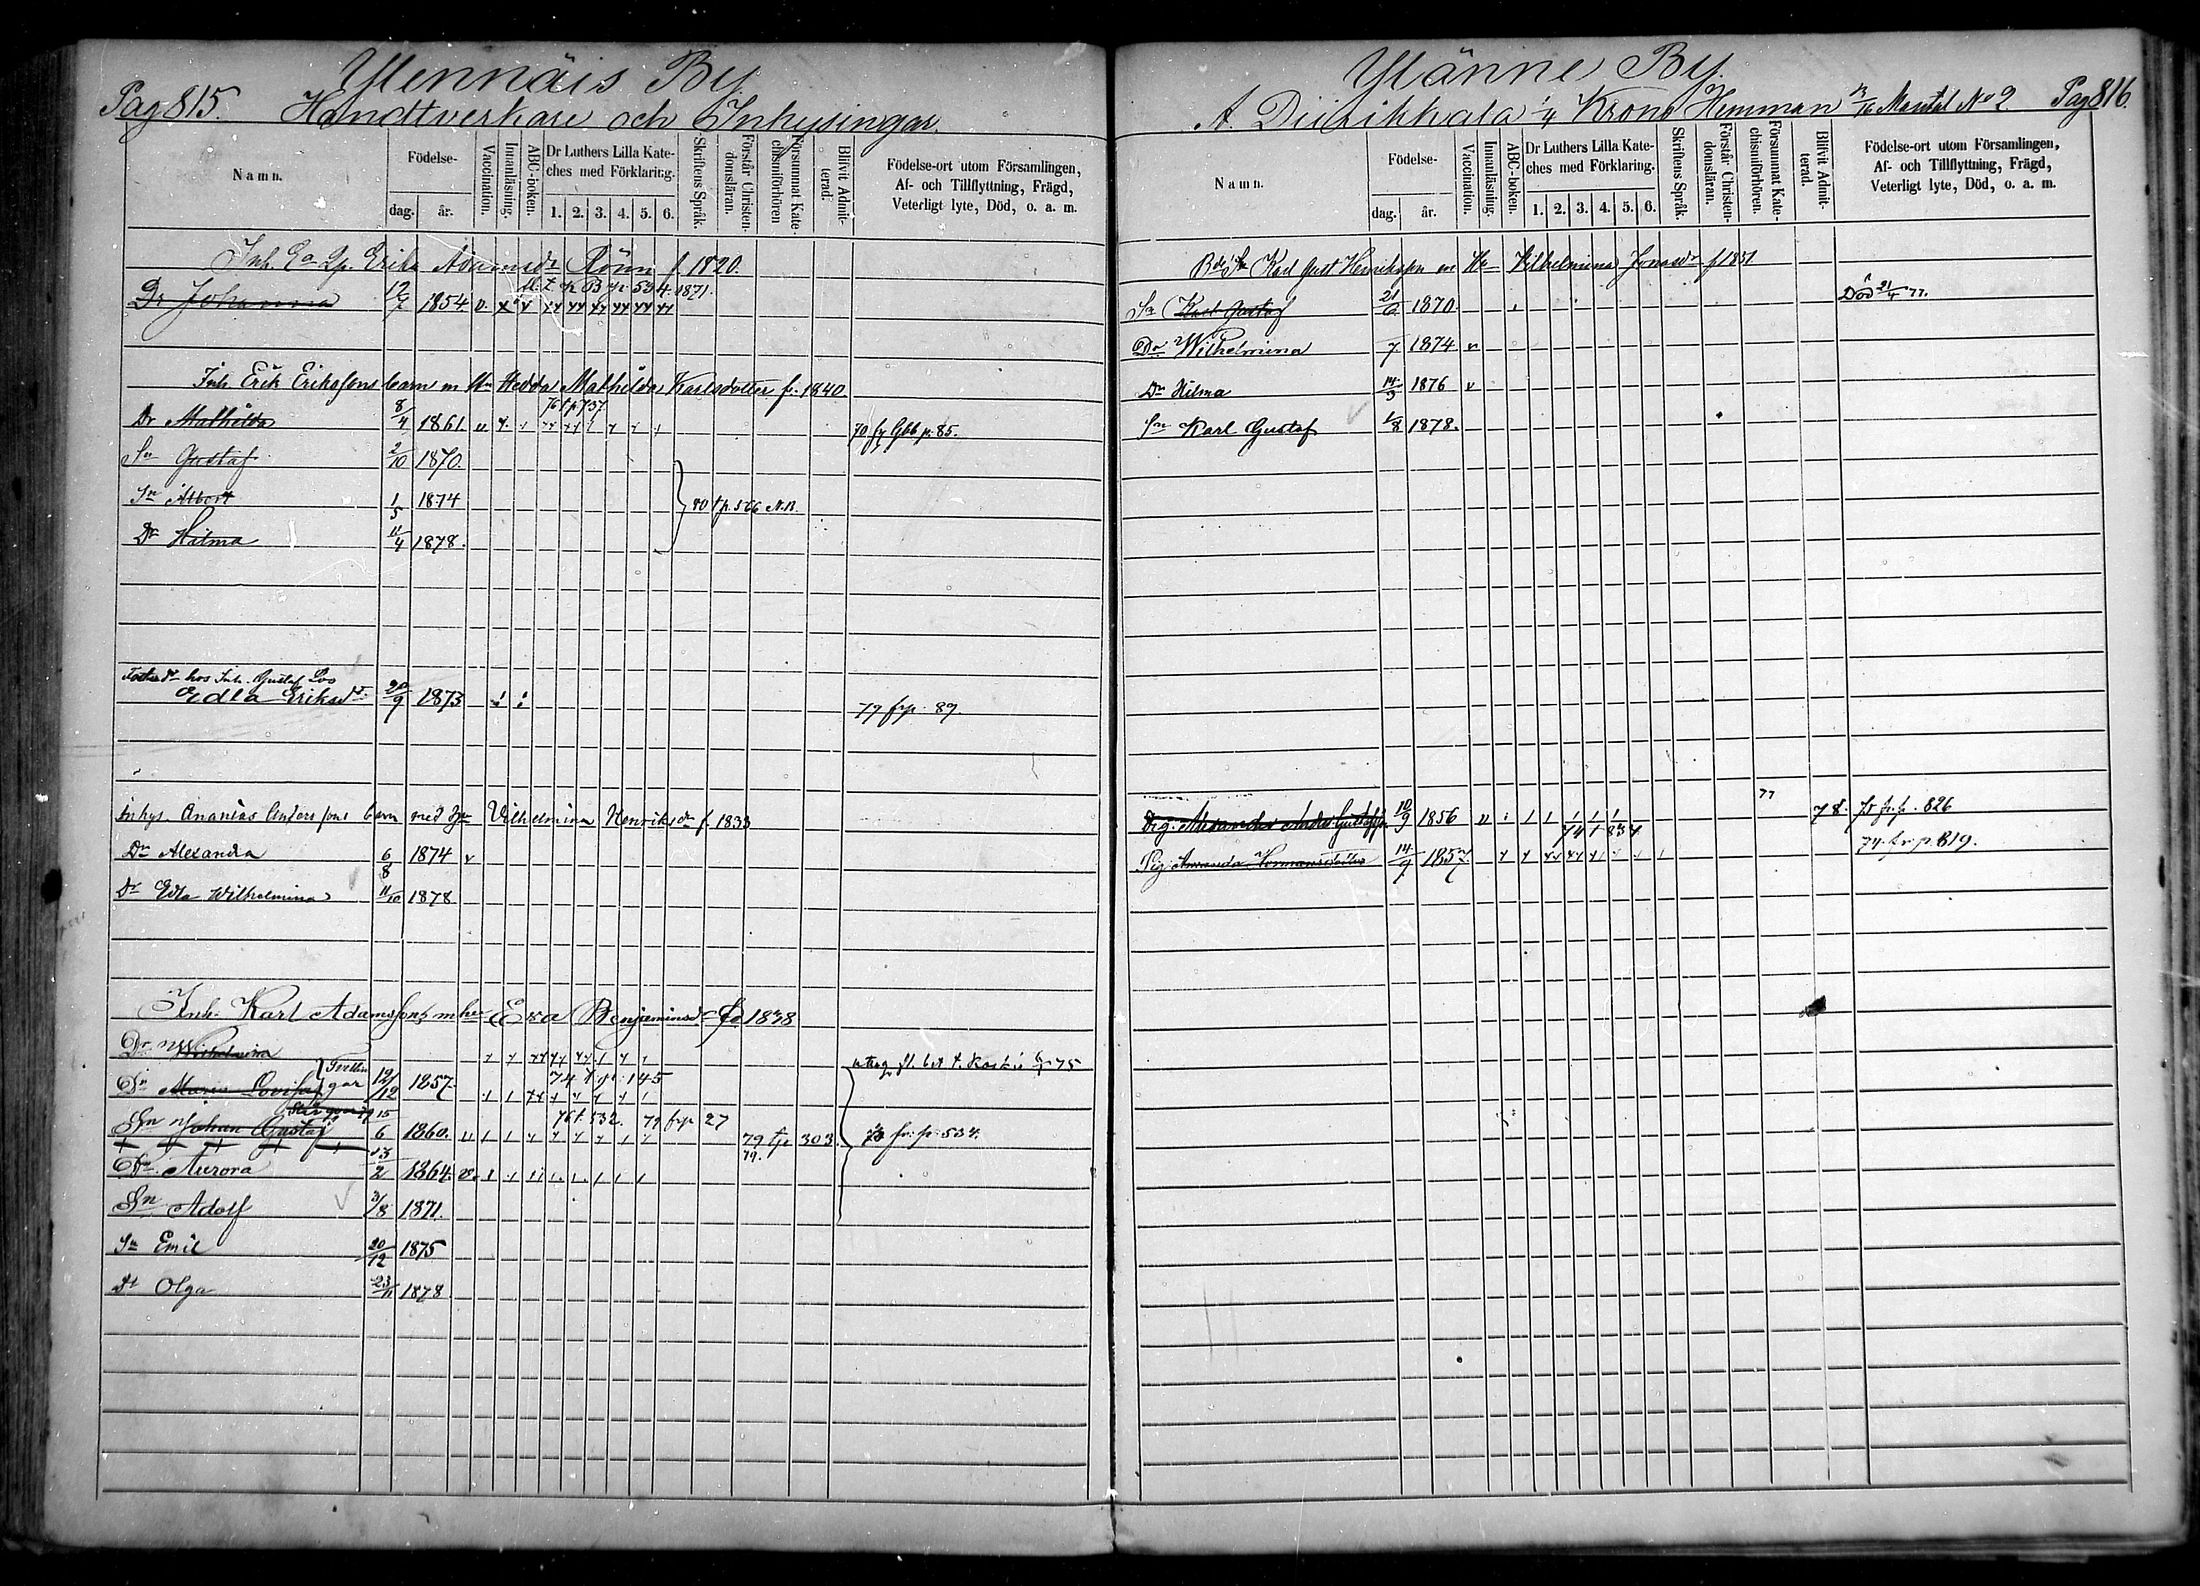 Ylennäis By
Pag 815. Handtverkare och Inhysingar.
Namn.
Födelse-
dag.
år.
Vaccination.
Innanläsning.
ABC-boken.
Dr Luthers Lilla Kate-
ches med Förklaring.
1. 2. 3. 4. 5. 6.
Skriftens Språk.
Förstår Christen-
domsläran.
Försummat Kate-
chismiförhören
Blifvit Admit-
terad.
Födelse-ort utom Församlingen,
Af- och Tillflyttning, Frägd,
Veterligt lyte, Död, o. a. m.
Inh. Erika Adamsdr Rönn f. 1820.
1871.
Dr Johanna 12/2 1854
Inh Erik Erikssons barn m Hu Hedda Mathilda Karlsdotter f. 1840.
76 t p 737
Dr Mathilda 8/4 1861 70 fr Gbb p. 85.
Sn Gustaf 2/10 1870.
Sn Albert 1/5 1874 80 t p. 566 N.B.
Dr Hilma 11/4 1878.
Fosterdr hos Inh. Gustaf Loo
Edla Eriksdr 20/9 1873
79 frp. 89.
Inhys. Ananias Anderssons barn med Hu Vilhelmina Henriksdr f. 1833
Dr Alexandra 6/8 1874 v
Dr Edla Wilhelmina 11/10 1878
Inh. Karl Adamssons m hu Eva Benjaminsdr fd 1838
Dr Wilhelmina
Tvillin
gar
Dr Maria Lovisa 12/12 1857. 74 t p. 145
76 t. 532. 79 frp 27
Sn Johan Gustaf 15/6 1860. 79 tp 303. 78 fr. p. 534.
79.
Dr Aurora 13/2 1864.
Sn Adolf 3/8 1871.
Sn Emil 20/12 1875
Dr Olga 23/11 1878
Ylänne By.
A. Diirikkala 1/4 Krono Hemman 13/16 Mantal No 2 Pag 816.
Namn.
Födelse-
dag.
år.
Vaccination.
Innanläsning.
ABC-boken.
Dr Luthers Lilla Kate-
ches med Förklaring.
1. 2. 3. 4. 5. 6.
Skriftens Språk.
Förstår Christen-
domsläran.
Försummat Kate-
chismiförhören.
Blifvit Admit-
terad.
Födelse-ort utom Församlingen,
Af- och Tillflyttning, Frägd,
Veterligt lyte, Död, o. a. m.
Karl Gust Henriksson m Hu Vilhelmina Jonasdr f 1851
Sn Karl Gustaf 21/6 1870. Död 21/4 77.
Dr Wilhelmina 7 1874 v
Dr Hilma 14/3 1876 v
Sn Karl Gustaf 1/8 1878.
77
Drg. Alexander Gustafsson 10/9 1856 78. fr. p. 826
74 t 837
Pig Amanda Hermansdotter 14/9 1857. 74. fr. p. 819.